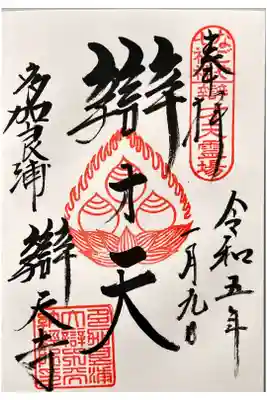 奉拝
令和五年
一月九日
辨才天
多加良浦
辨天寺